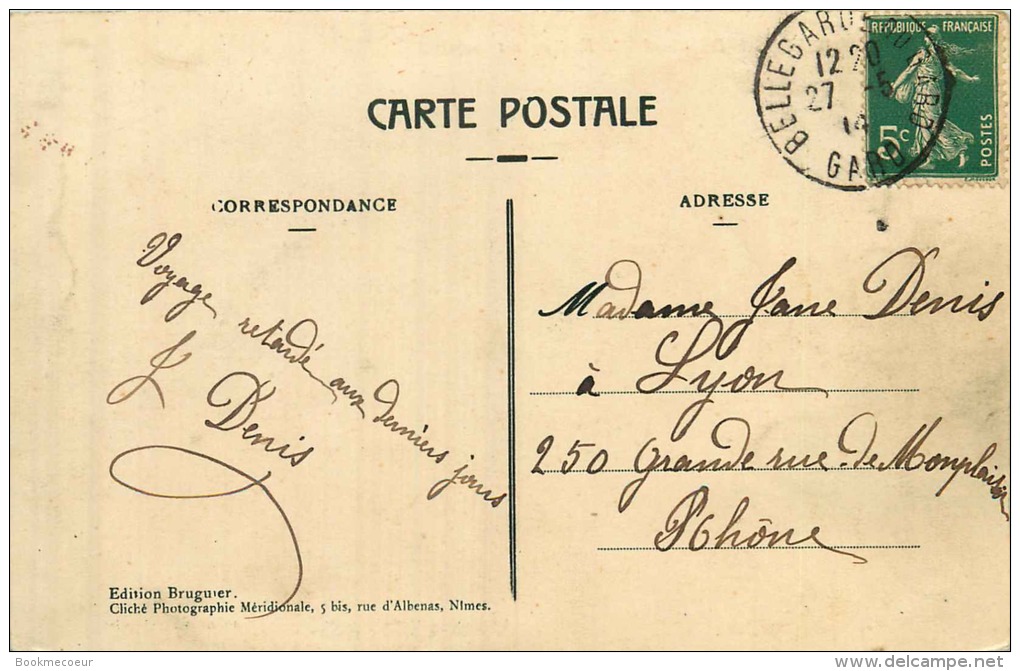 CARTE POSTALE
CORRESPONDANCE
ADRESSE
REPUBLIQUE FRANÇAISE
5c
POSTES
BELLEGARDE DU GARD
12 20
27 - 5
14
GARD
Voyage retardé aux derniers jours
J Denis
Madame Jane Denis
à Lyon
250 Grande rue de Monplaisir
Rhône
Edition Bruguier.
Cliché Photographie Méridionale, 5 bis, rue d'Albenas, Nîmes.
Bookmecoeur
delcampe.net